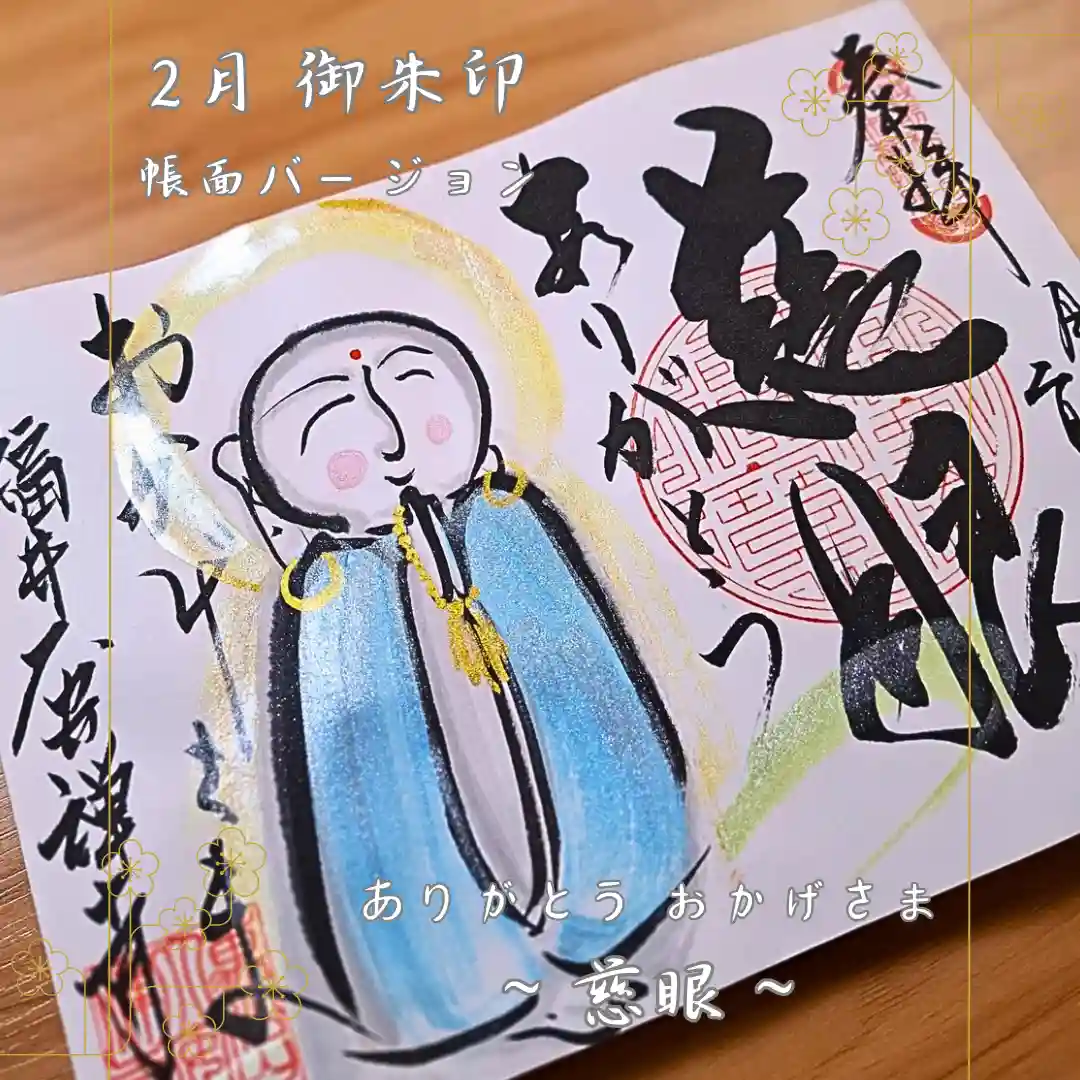 2月 御朱印
帳面バージョン
奉拝
慈眼
ありがとう
おかげさま
福井
ありがとう おかげさま
~ 慈眼 ~